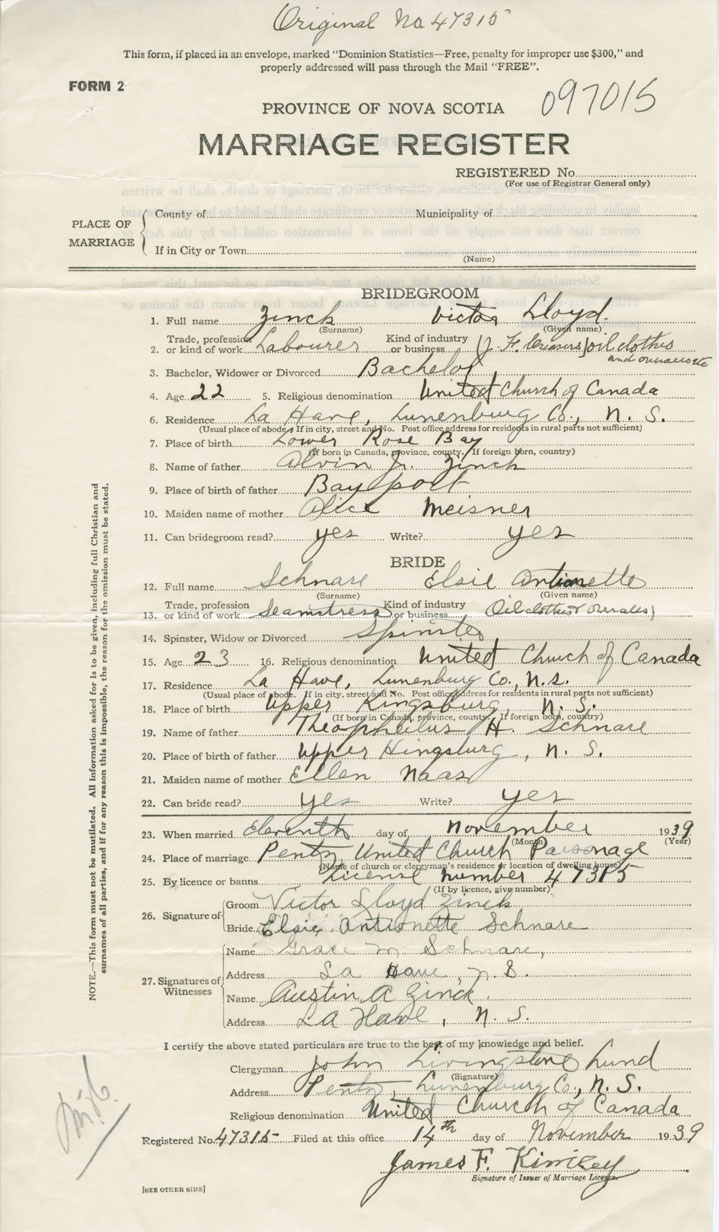 Original No. 47315
This form, if placed in an envelope, marked "Dominion Statistics—Free, penalty for improper use $300," and
properly addressed will pass through the Mail "FREE".
FORM 2
097015
PROVINCE OF NOVA SCOTIA
MARRIAGE REGISTER
REGISTERED No.
(For use of Registrar General only)
PLACE OF MARRIAGE
County of Municipality of
If in City or Town
(Name)
BRIDEGROOM
1. Full name Zinck Victor Lloyd.
(Surname) (Given name)
Trade, profession Kind of industry
2. or kind of work Labourer or business (J. F. ) oil clothes
and overalls etc
3. Bachelor, Widower or Divorced Bachelor
4. Age 22 5. Religious denomination United Church of Canada
6. Residence La Have, Lunenburg Co., N. S.
(Usual place of abode. If in city, street and No. Post office address for residents in rural parts not sufficient)
7. Place of birth Lower Rose Bay
(If born in Canada, province, county. If foreign born, country)
8. Name of father Alvin Jr. Zinck
9. Place of birth of father Bayport
10. Maiden name of mother Alice Meisner
11. Can bridegroom read? yes Write? yes
BRIDE
12. Full name Schnare Elsie Antionette
(Surname) (Given name)
Trade, profession Kind of industry
13. or kind of work Seamstress or business (Oil clothes & overalls)
14. Spinster, Widow or Divorced Spinster
15. Age 23 16. Religious denomination United Church of Canada
17. Residence La Have, Lunenburg Co., N.S.
(Usual place of abode. If in city, street and No. Post office address for residents in rural parts not sufficient)
18. Place of birth Upper Kingsburg, N. S.
(If born in Canada, province, county. If foreign born, country)
19. Name of father Theopheulus H. Schnare
20. Place of birth of father Upper Kingsburg, N. S.
21. Maiden name of mother Ellen Naas
22. Can bride read? yes Write? yes
23. When married Eleventh day of November 1939
(Month) (Year)
24. Place of marriage Pentz United Church Parsonage
(Name of church or clergyman's residence or location of dwelling house)
25. By licence or banns License Number 47315
(If by licence, give number)
26. Signature of
Groom Victor Lloyd Zinck
Bride Elsie Antionette Schnare
27. Signatures of Witnesses
Name Grace M Schnare,
Address La Have, N. S.
Name Austin A Zinck.
Address La Have, N. S.
I certify the above stated particulars are true to the best of my knowledge and belief.
Clergyman John Livingstone Lund
(Signature)
Address Pentz Lunenburg Co., N. S.
Religious denomination United Church of Canada
Registered No. 47315 Filed at this office 14th day of November 1939
James F. Kinzey
Signature of Issuer of Marriage License
[SEE OTHER SIDE]
NOTE.—This form must not be mutilated. All information asked for is to be given, including full Christian and
surnames of all parties, and if for any reason this is impossible, the reason for the omission must be stated.